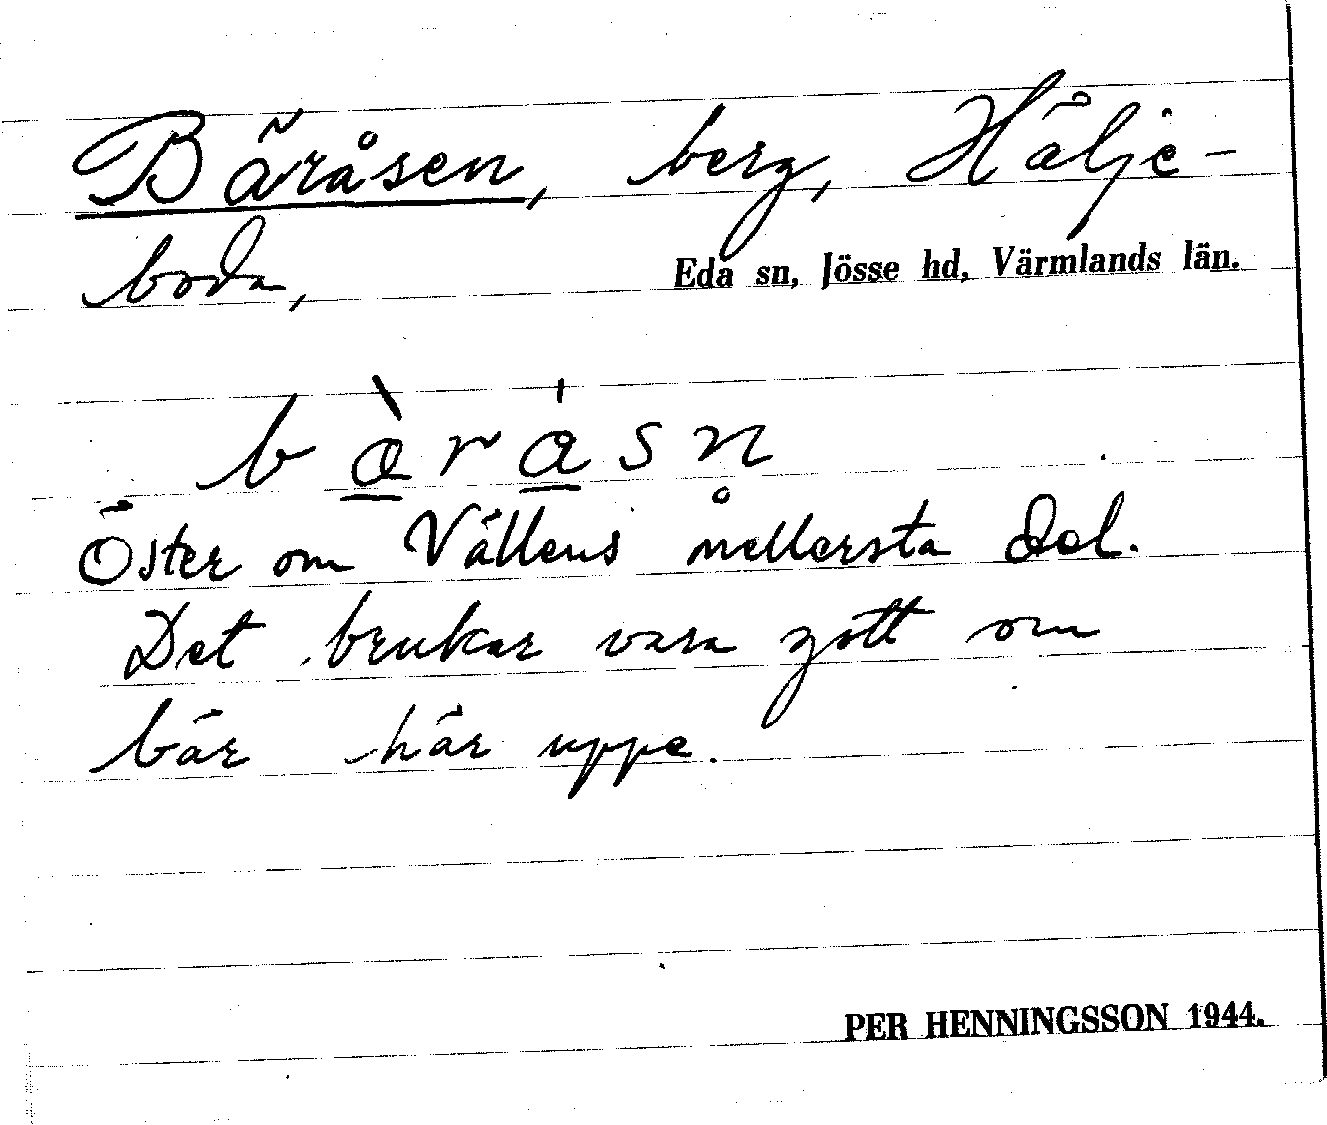 Bäråsen, berg, Hälje-
boda, Eda sn, Jösse hd, Värmlands län.
bàrásn
Öster om Vällens mellersta del.
Det brukar vara gott om
bär här uppe.
PER HENNINGSSON 1944.